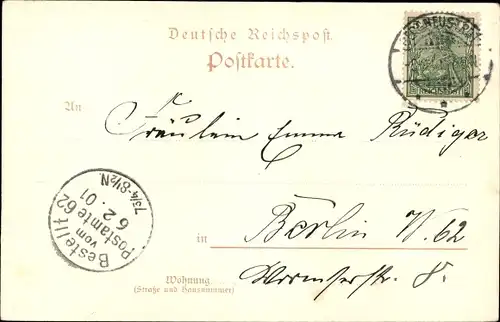 Deutsche Reichspost.
Postkarte.
An
Fräulein Emma Rüdiger
Bestellt
vom
Postamte 62
6 2. 01
7¾-8½N.
in Berlin W. 62
Wohnung
(Straße und Hausnummer)
Wormserstr. 8.